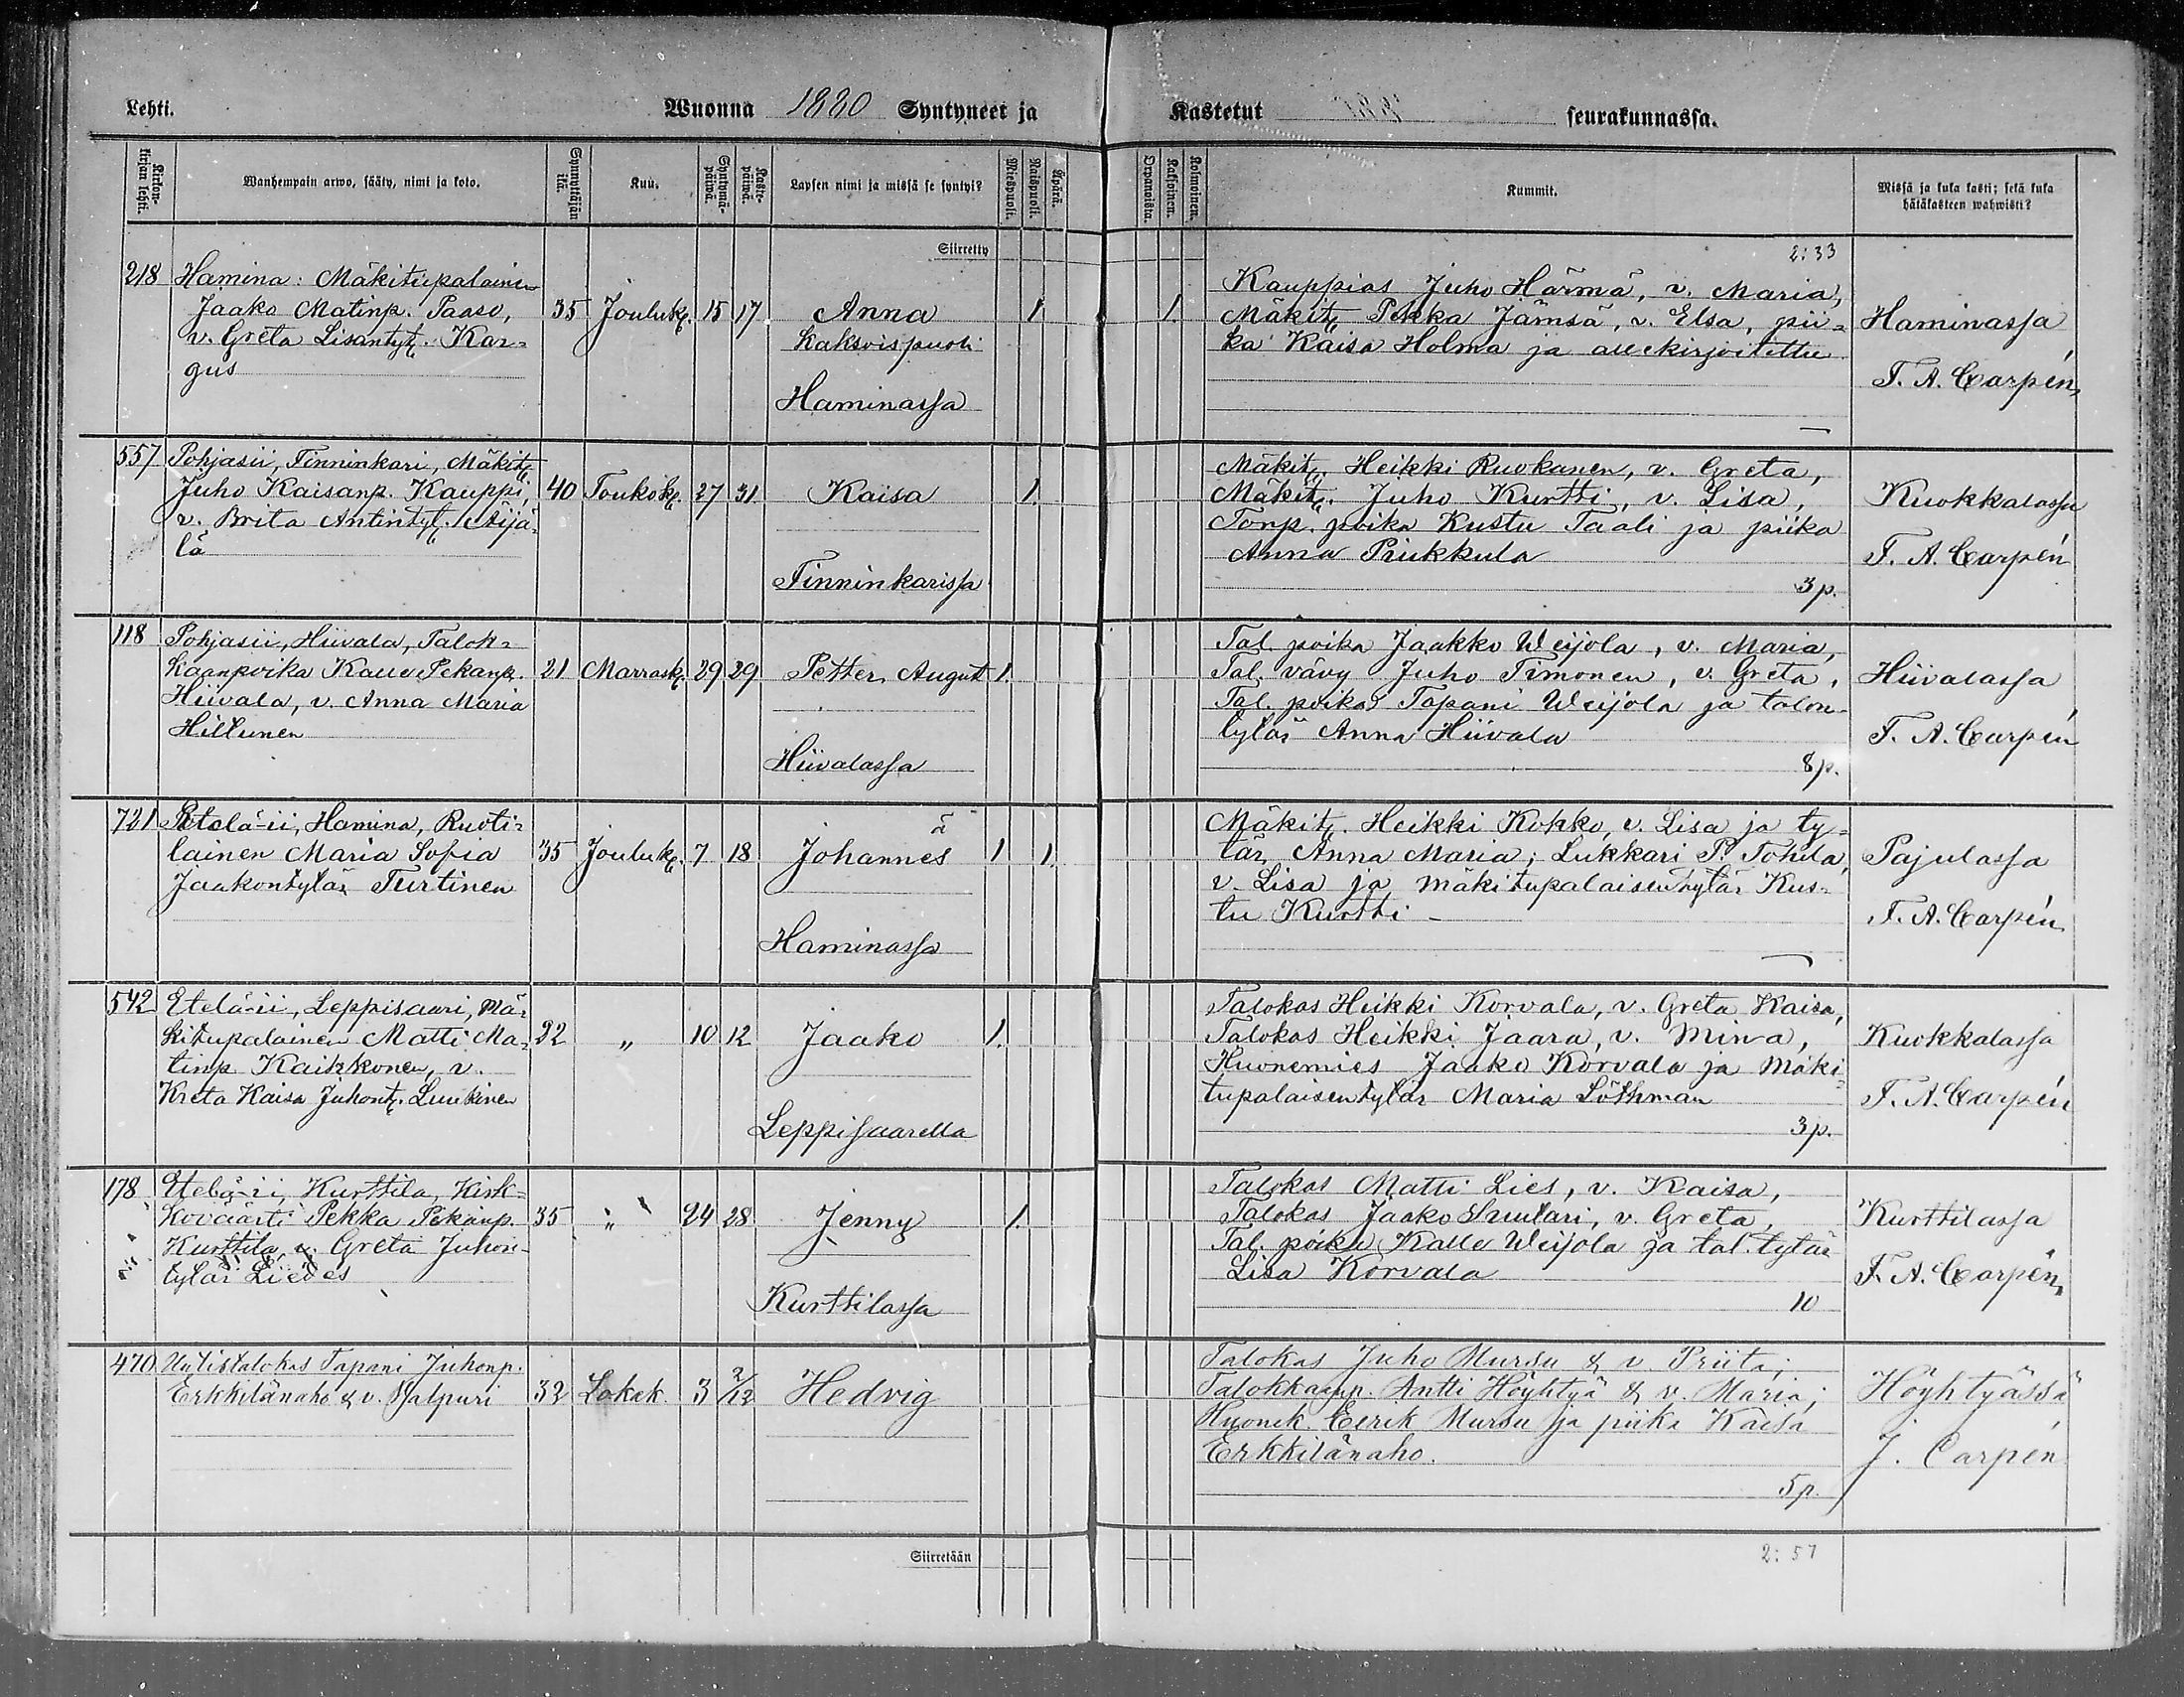 Lehti.
Wuonna 1880 Syntyneet ja
Kastetut seurakunnassa.
Kirkon-kirjan lehti.
Wanhempain arwo, sääty, nimi ja koto.
Synnyttäjän ikä.
Kuu.
Syntymä-päiwä.
Kaste-päiwä.
Lapsen nimi ja missä se syntyi?
Miespuoli.
Naispuoli.
Äpärä.
Orpanoista.
Kaksoinen.
Kolmoinen.
Kummit.
Missä ja kuka kasti; sekä kuka
hätäkasteen wahwisti?
Siirretty
2:33
218 Hamina: Mäkitupalainen
Jaako Matinp. Paaso,
v. Greta Lisantyt. Kar-
gus
35 Jouluk. 15 17
Anna
Kaksoispuoli
Haminassa
1
1.
Kauppias Juho Härmä, v. Maria,
Mäkit. Pekka Jämsä, v. Elsa, pii-
ka Kaisa Holma ja allekirjoitettu
Haminassa
F. A. Carpén
557 Pohjasii, Finninkari, Mäkit.
Juho Kaisanp. Kauppi,
v. Brita Antintyt. Äijä-
lä
40 Toukok. 27 31.
Kaisa
Finninkarissa
1.
Mäkit. Heikki Ruokanen, v. Greta,
Mäkit. Juho Kurtti, v. Lisa,
Torp. poika Kustu Taali ja piika
Anna Priekkula
3p.
Kuokkalassa
F. A. Carpén
118 Pohjasii, Hiivala, Talok-
kaanpoika Kalle Pekanp.
Hiivala, v. Anna Maria
Hiltunen
21 Marrask. 29 29
Petter August
Hiivalassa
1.
Tal. poika Jaakko Weijola, v. Maria,
Tal. vävy Juho Timonen, v. Greta,
Tal. poika Tapani Weijola ja talon-
tytär Anna Hiivala
8p.
Hiivalassa
F. A. Carpén
721 Etelä-ii, Hamina, Ruoti-
lainen Maria Sofia
Jaakontytär Turtinen
35 Jouluk. 7 18
ä
Johannes
Haminassa
1 1.
Mäkit. Heikki Kokko, v. Lisa ja ty-
tär Anna Maria; Lukkari P. Tohila,
v. Lisa ja mäkitupalaisentytär Kus-
tu Kurtti -
Pajulassa
F. A. Carpén
542 Etelä-ii, Leppisaari, Mä-
kitupalainen Matti Ma-
tinp. Kaikkonen, v.
Kreta Kaisa Juhont. Luukinen
32 „ 10 12
Jaako
Leppisaarella
1.
Talokas Heikki Korvala, v. Greta Kaisa,
Talokas Heikki Jaara, v. Mina,
Huonemies Jaako Korvala ja Mäki-
tupalaisentytär Maria Löthman
3p.
Kuokkalassa
F. A. Carpén
178 Etelä-ii, Kurttila, Kirk-
koväärti Pekka Pekanp.
Kurttila, v. Greta Juhon-
tytär Liedes
35 „ 24 28
Jenny
Kurttilassa
1.
Talokas Matti Lies, v. Kaisa,
Talokas Jaako Suutari, v. Greta,
Tal. poika Kalle Weijola ja tal. tytär
Lisa Korvala
10
Kurttilassa
F. A. Carpén
470 Uutistalokas Tapani Juhonp.
Erkkilänaho & v. Valpuri
32 Lokak. 3 2/12
Hedvig
Talokas Juho Mursu & v. Priita;
Talokkaanp. Antti Höyhtyä & v. Maria;
Huonek. Eerik Mursu ja piika Kaisa
Erkkilänaho.
5p.
Höyhtyässä
J. Carpén
Siirretään
2:57